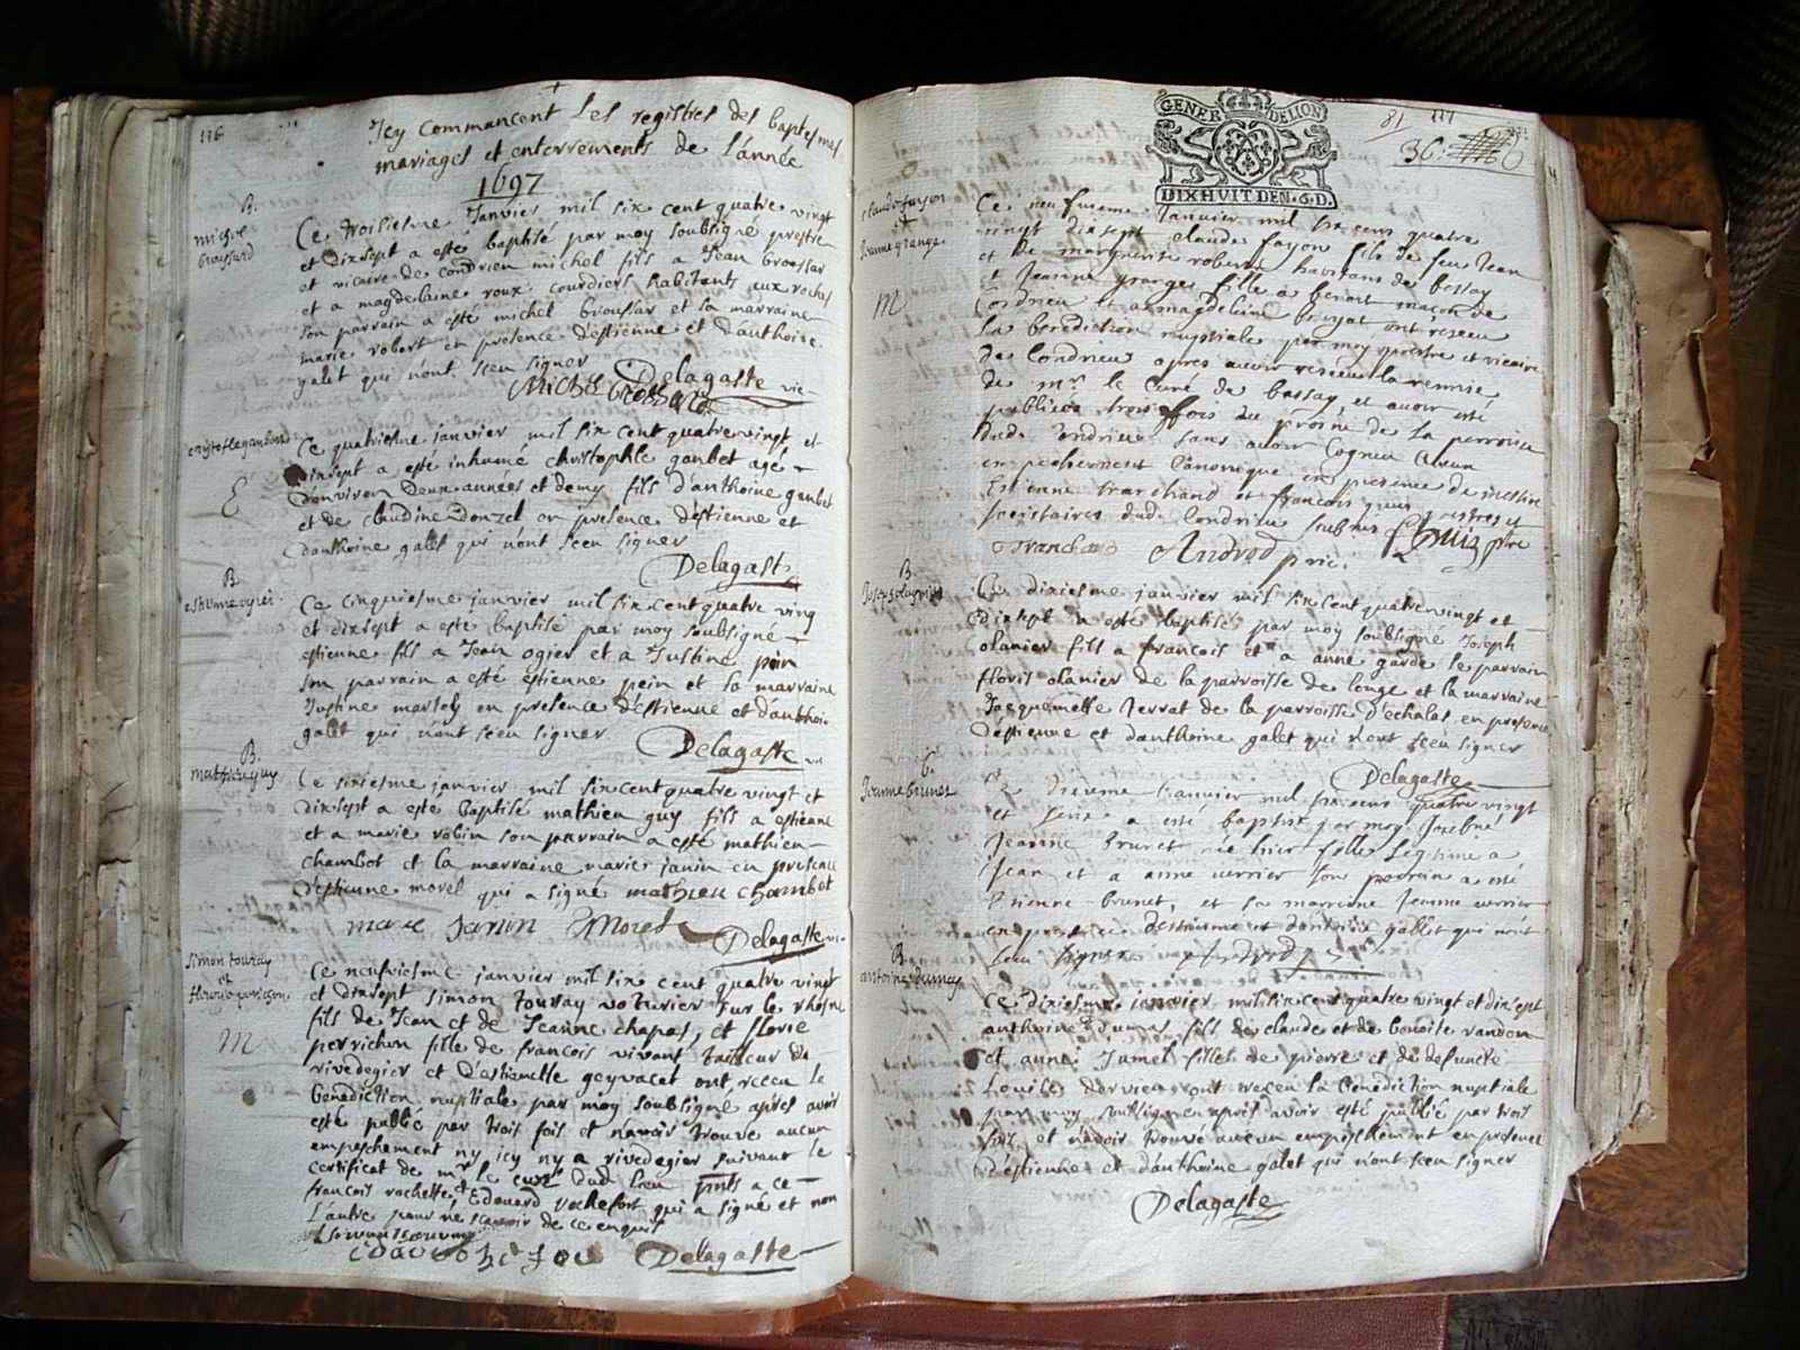 116
Icy Commancent Les registres des baptesmes
mariages et enterrements de l'année
1697
B.
michel
broussard
Ce troisiesme Janvier mil six cent quatre vingt
et dixsept a esté baptisé par moy soubsigné prestre
et vicaire de condrieu michel fils a Jean broussar
et a magdelaine roux courdiers habitants aux roches
son parrain a esté michel broussar et sa marraine
marie robert en presence d'estienne et d'anthoine
galet qui n'ont sceu signer
Delagaste vic
Michel brossard
Ce quatriesme janvier mil six cent quatrevingt et
dixsept a esté inhumé christophle gaubet agé
d'environ deux années et demy fils d'anthoine gaubet
et de claudine donzel en presence d'estienne et
d'anthoine galet qui n'ont sceu signer
E
Delagaste
B.
Ce cinquiesme janvier mil six cent quatre ving
et dixsept a esté baptisé par moy soubsigné
estienne fils a Jean ogier et a Justine pein
son parrain a esté estienne pein et sa marraine
Justine martely en presence d'estienne et d'anthoi
galet qui n'ont sceu signer
Delagaste vic
B.
mathieu guy
Ce sixiesme janvier mil six cent quatre vingt et
dixsept a esté baptisé mathieu guy fils a estienne
et a marie robin son parrain a esté mathieu
chambot et la marraine marie janin en presence
d'estienne morel qui a signé mathieu chambot
marie Janin Morel
Delagaste vic
simon touray
et
Ce neufviesme janvier mil six cent quatre vingt
et dixsept simon touray voiturier sur le rhosne
fils de Jean et de Jeanne chapas, et florie
perrichon fille de francois vivant tailleur de
rivedegier et d'estiennette geyvacet ont receu le
benediction nuptiale par moy soubsigné apres avoir
esté publié par trois fois et n'avoir trouvé aucun
empeschement ny icy ny a rivedegier suivant le
certificat de mr le curé dud lieu pnts a ce
francois rochette et Edouard rochefort qui a signé et non
l'autre pour ne scavoir de ce enquis
M
Delagaste
GENER DELION
DIXHUIT DEN. 6.D.
81
36
claude fayon
Jeanne grange
M
Ce neufvieme Janvier mil six cens quatre
vingt dixsept claude fayon fils de feu Jean
et de marguerite robert habitans de bessay
et Jeanne grange fille a benoit maçon de
Condrieu et a magdeleine ont reseu
la benediction nuptiale par moy prestre et vicaire
de Condrieu apres avoir reseu la remise
de mr le Curé de bessay, et avoir esté
publiés trois fois au prosne de la perroisse
dud. Condrieu sans avoir Cogneu aucun
empechement Canonique en presence de messire
Estienne tranchand et francois prestres et
dud. Condrieu
Tranchand Androd
B.
Ce dixiesme janvier mil six cent quatrevingt et
dixsept a esté baptisé par moy soubsigné Joseph
olanier fils a francois et a anne garde le parrain
floris olanier de la parroisse de longe et la marraine
Jacquemette ferrat de la parroisse d'echalas en presence
d'estienne et d'anthoine galet qui n'ont sceu signer
Delagaste
Jeanne brunet
Janvier mil six cens quatre vingt
et seize a esté baptisé par moy
Jeanne brunet née hier fille legitime a
Jean et a anne verrier son parrain a esté
Etienne brunet, et sa marraine Jeanne verrier
en presence d'estienne et d'antoine gallet qui n'ont
sceu signer
B
antoine dumas
Ce dixiesme janvier mil six cent quatre vingt et dixsept
anthoine dumas fils de claude et de benoite
et anne Jamet fille de pierre et de defuncte
Louise dervieu ont receu la benediction nuptiale
par moy soubsigné apres avoir esté publié par trois
fois et n'avoir trouvé aucun empeschement en presence
d'estienne et d'anthoine galet qui n'ont sceu signer
Delagaste